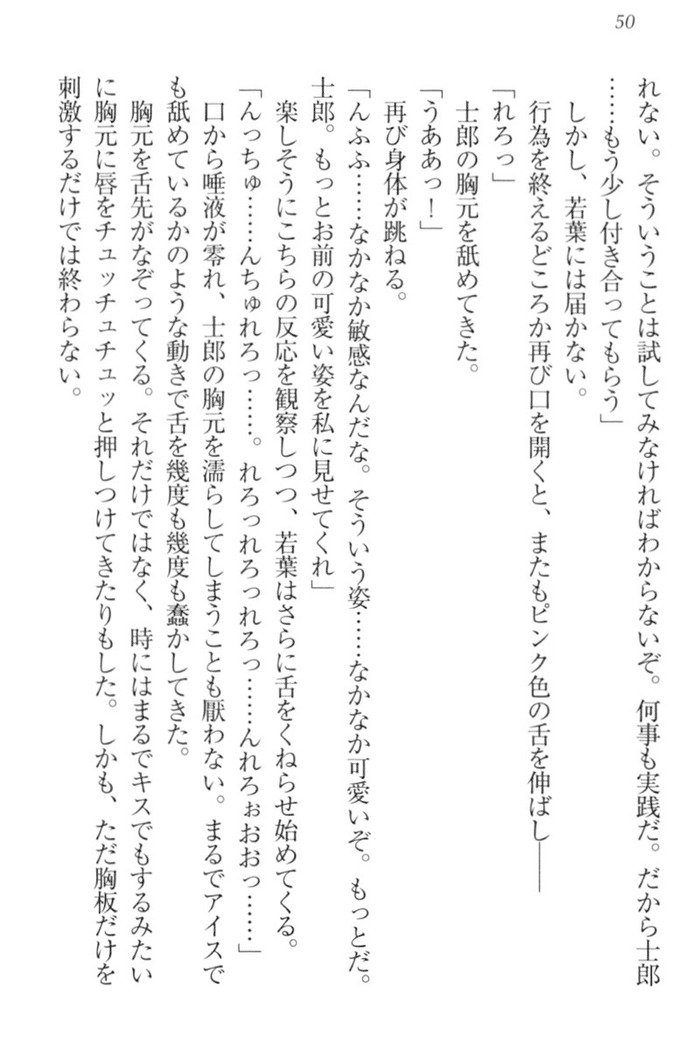 50
れない。そういうことは試してみなければわからないぞ。何事も実践だ。だから士郎
……もう少し付き合ってもらう」
しかし、若葉には届かない。
行為を終えるどころか再び口を開くと、またもピンク色の舌を伸ばし――
「れろっ」
士郎の胸元を舐めてきた。
「うああっ！」
再び身体が跳ねる。
「んふふ……なかなか敏感なんだな。そういう姿……なかなか可愛いぞ。もっとだ。
士郎。もっとお前の可愛い姿を私に見せてくれ」
楽しそうにこちらの反応を観察しつつ、若葉はさらに舌をくねらせ始めてくる。
「んっちゅ……んちゅれろっ……。れろっれろっれろっ……んれろぉおおっ……」
口から唾液が零れ、士郎の胸元を濡らしてしまうことも厭わない。まるでアイスで
も舐めているかのような動きで舌を幾度も幾度も蠢かしてきた。
胸元を舌先がなぞってくる。それだけではなく、時にはまるでキスでもするみたい
に胸元に唇をチュッチュチュッと押しつけてきたりもした。しかも、ただ胸板だけを
刺激するだけでは終わらない。